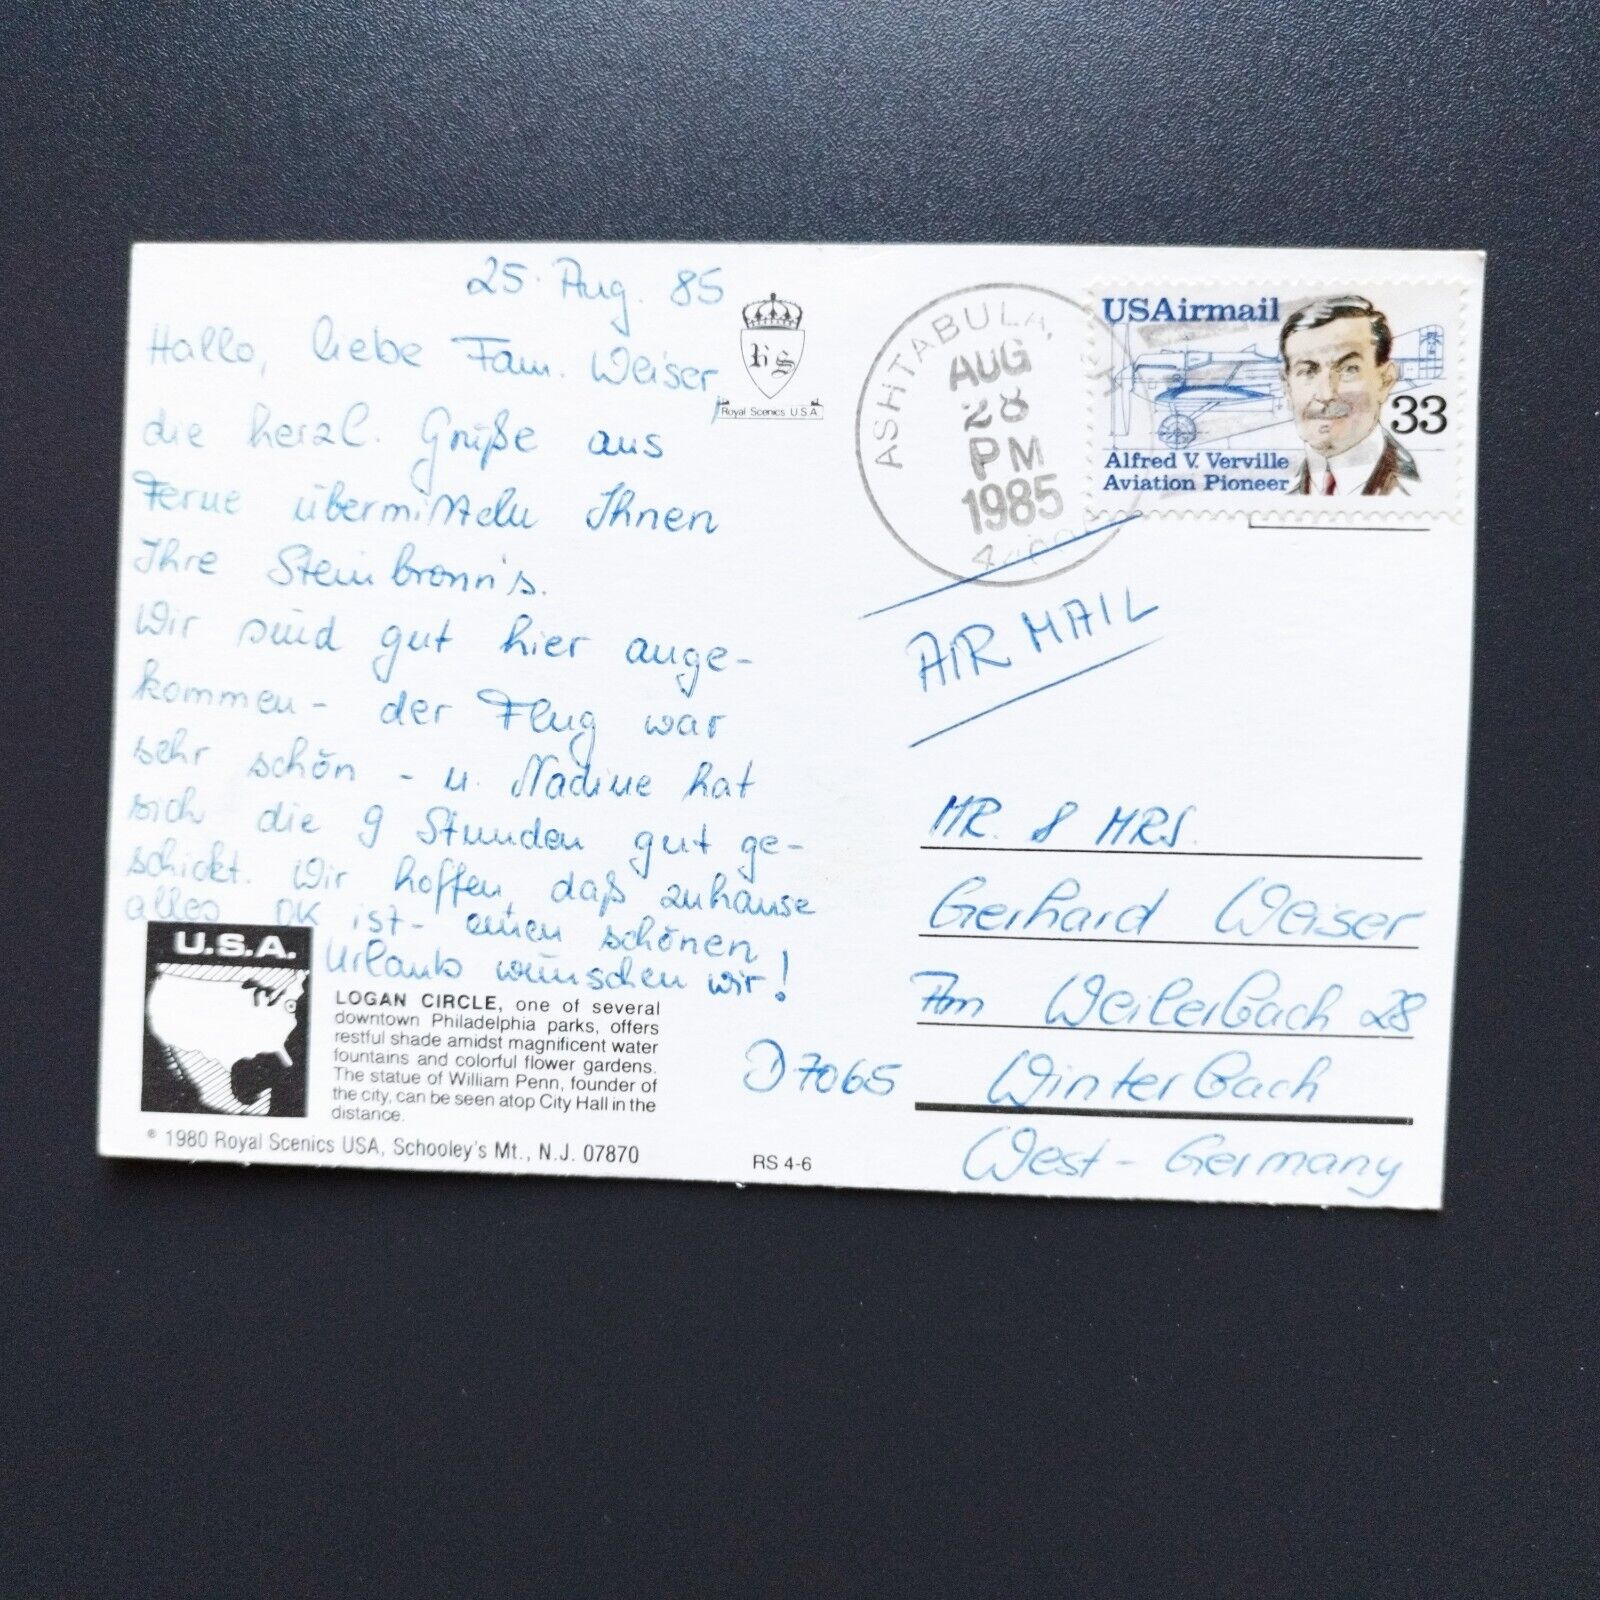 25. Aug. 85
Hallo, liebe Fam. Weiser,
die herzl. Grüße aus
Ferne übermitteln Ihnen
Ihre Steinbronn's.
Wir sind gut hier ange-
kommen - der Flug war
sehr schön - u. Nadine hat
sich die 9 Stunden gut ge-
schickt. Wir hoffen, daß zuhause
alles OK ist - einen schönen
Urlaub wünschen wir!
U.S.A.
LOGAN CIRCLE, one of several
downtown Philadelphia parks, offers
restful shade amidst magnificent water
fountains and colorful flower gardens.
The statue of William Penn, founder of
the city, can be seen atop City Hall in the
distance.
© 1980 Royal Scenics USA, Schooley's Mt., N.J. 07870
RS 4-6
RS
Royal Scenics U.S.A.
ASHTABULA,
AUG
28
PM
1985
USAirmail
33
Alfred V. Verville
Aviation Pioneer
AIR MAIL
MR. & MRS.
Gerhard Weiser
Am Weilerbach 28
D 7065 Winterbach
West-Germany